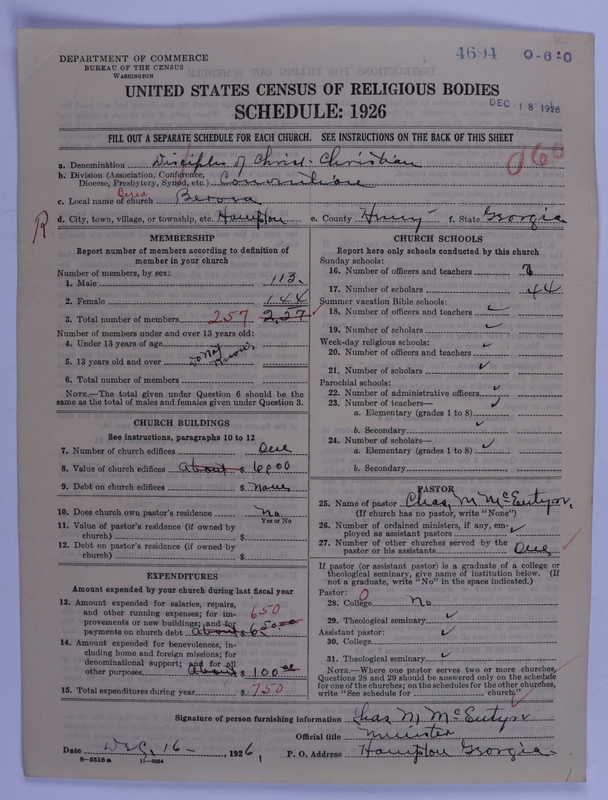 4694 0-6-0
DEPARTMENT OF COMMERCE
BUREAU OF THE CENSUS
WASHINGTON
UNITED STATES CENSUS OF RELIGIOUS BODIES
DEC 18 1926
SCHEDULE: 1926
FILL OUT A SEPARATE SCHEDULE FOR EACH CHURCH. SEE INSTRUCTIONS ON THE BACK OF THIS SHEET
060
a. Denomination Disciples of Christ - Christian
b. Division (Association, Conference, Diocese, Presbytery, Synod, etc.) Convention
Berea
c. Local name of church Berora
R
d. City, town, village, or township, etc. Hampton e. County Henry f. State Georgia
MEMBERSHIP
Report number of members according to definition of member in your church
Number of members, by sex:
1. Male 113.
2. Female 144
3. Total number of members 257 227
Number of members under and over 13 years old:
4. Under 13 years of age
do not know
5. 13 years old and over
6. Total number of members
NOTE.—The total given under Question 6 should be the same as the total of males and females given under Question 3.
CHURCH BUILDINGS
See instructions, paragraphs 10 to 12
7. Number of church edifices One
8. Value of church edifices about $ 6000
9. Debt on church edifices $ None
10. Does church own pastor's residence? No
Yes or No
11. Value of pastor's residence (if owned by church) $
12. Debt on pastor's residence (if owned by church) $
EXPENDITURES
Amount expended by church during last fiscal year
13. Amount expended for salaries, repairs, and other running expenses; for improvements or new buildings; and for payments on church debt about $ 650.00
650
14. Amount expended for benevolences, including home and foreign missions; for denominational support; and for all other purposes about $ 100.00
15. Total expenditures during year $ 750
CHURCH SCHOOLS
Report here only schools conducted by this church
Sunday schools:
16. Number of officers and teachers
17. Number of scholars 44
Summer vacation Bible schools:
18. Number of officers and teachers
19. Number of scholars
Week-day religious schools:
20. Number of officers and teachers
21. Number of scholars
Parochial schools:
22. Number of administrative officers
23. Number of teachers—
a. Elementary (grades 1 to 8)
b. Secondary
24. Number of scholars—
a. Elementary (grades 1 to 8)
b. Secondary
PASTOR
25. Name of pastor Chas. M McEntyre,
(If church has no pastor, write "None")
26. Number of ordained ministers, if any, employed as assistant pastors
27. Number of other churches served by the pastor or his assistants One
If pastor (or assistant pastor) is a graduate of a college or theological seminary, give name of institution below. (If not a graduate, write "No" in the space indicated.)
Pastor: 0
28. College No
29. Theological seminary
Assistant pastor:
30. College
31. Theological seminary
NOTE.—Where one pastor serves two or more churches, Questions 28 and 29 should be answered only on the schedule for one of the churches; on the schedules for the other churches, write "See schedule for church."
Signature of person furnishing information Chas M McEntyre
Official title minister
Date Dec, 16- , 1926, P. O. Address Hampton Georgia.
8-5518a 11-9084